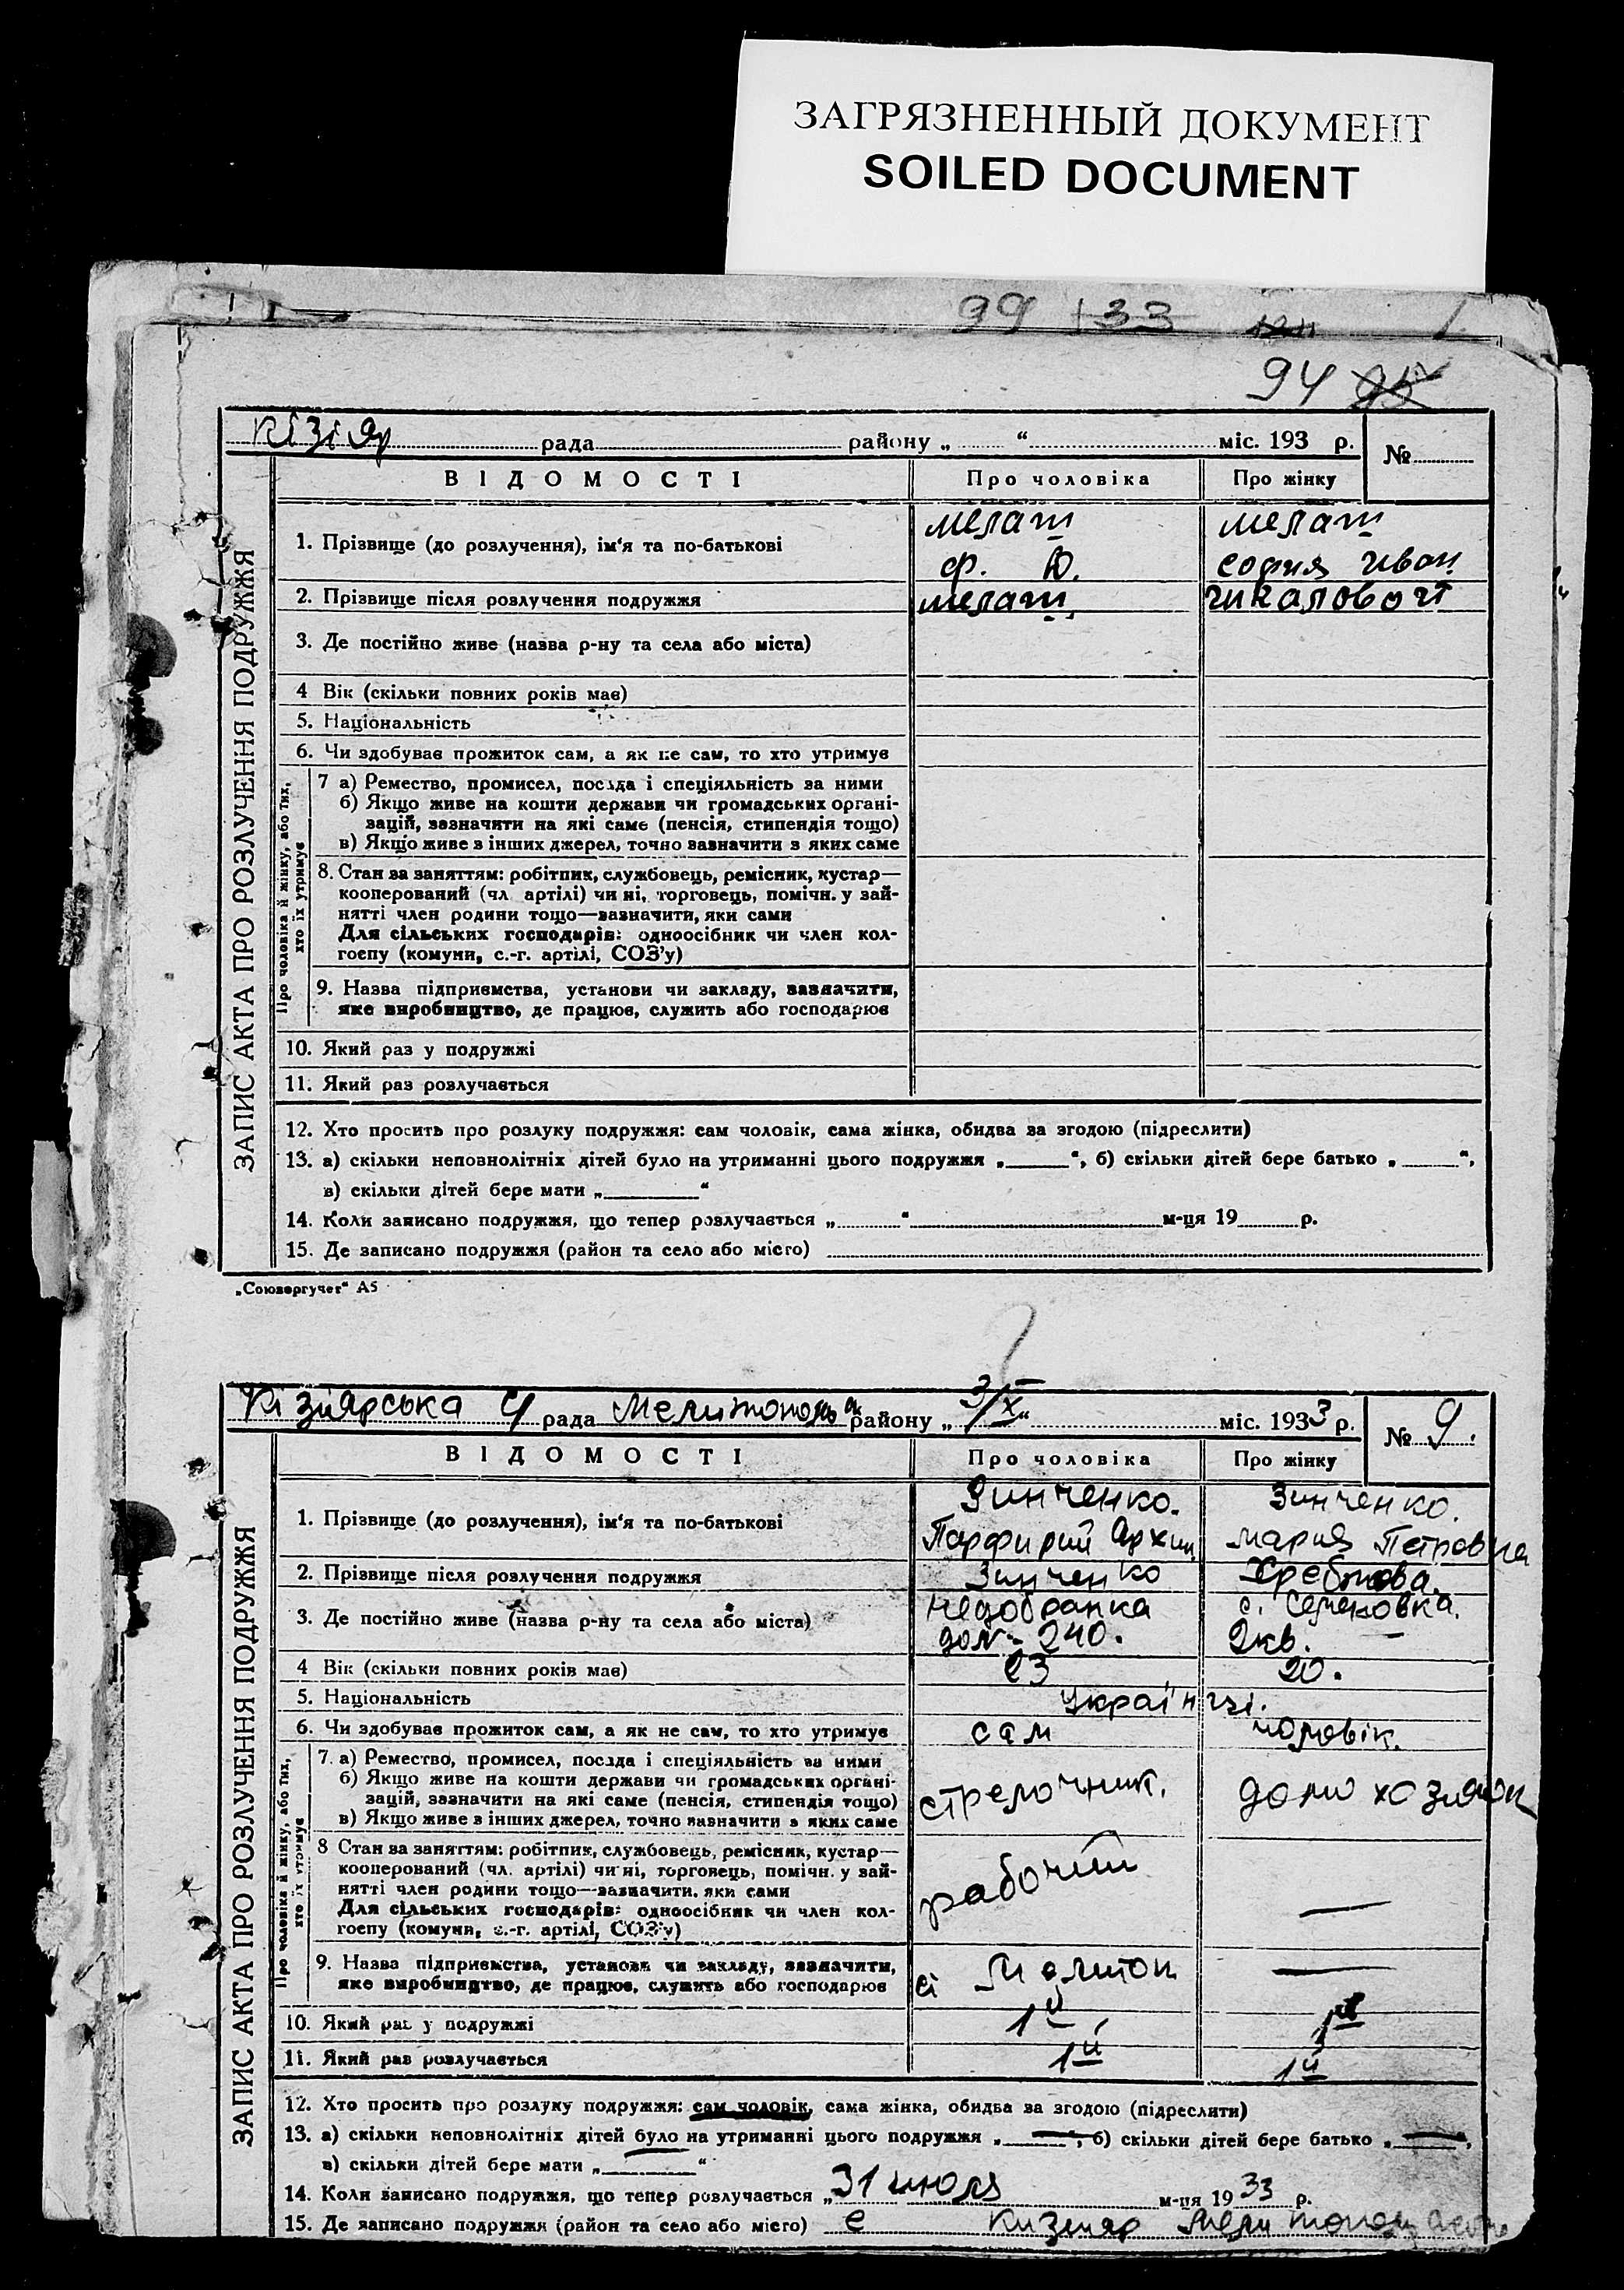 ЗАГРЯЗНЕННЫЙ ДОКУМЕНТ
SOILED DOCUMENT
99 133
94 95
Кізіяр рада району „ “ міс. 193 р.
№
ЗАПИС АКТА ПРО РОЗЛУЧЕННЯ ПОДРУЖЖЯ
ВІДОМОСТІ Про чоловіка Про жінку
1. Прізвище (до розлучення), ім‘я та по-батькові
мелаш мелаш
Ф. Ю. София Иван
2. Прізвище після розлучення подружжя мелаш
3. Де постійно живе (назва р-ну та села або міста)
4 Вік (скільки повних років має)
5. Національність
6. Чи здобував прожиток сам, а як не сам, то хто утримує
Про чоловіка й жінку, або тих,
хто їх утримує
7 а) Ремество, промисел, посада і спеціяльність за ними
б) Якщо живе на кошти держави чи громадських органі-
зацій, зазначити на які саме (пенсія, стипендія тощо)
в) Якщо живе з інших джерел, точно зазначити з яких саме
8. Стан за заняттям: робітник, службовець, ремісник, кустар—
кооперований (чл. артілі) чи ні, торговець, помічн. у зай-
нятті член родини тощо—зазначити, яки сами
Для сільських господарів: одноосібник чи член кол-
госпу (комуни, с.-г. артілі, СОЗ’у)
9. Назва підприємства, установи чи закладу, зазначити,
яке виробництво, де працює, служить або господарює
10. Який раз у подружжі
11. Який раз розлучається
12. Хто просить про розлуку подружжя: сам чоловік, сама жінка, обидва за згодою (підреслити)
13. а) скільки неповнолітніх дітей було на утриманні цього подружжя „ “, б) скільки дітей бере батько „ “,
в) скільки дітей бере мати „ “
14. Коли записано подружжя, що тепер розлучається „ “ м-ця 19 р.
15. Де записано подружжя (район та село або місто)
„Союзоргучет“ А5
Кізиярська с/ рада Мелитополь району „ 3/X “ міс. 1933 р.
№ 9.
ЗАПИС АКТА ПРО РОЗЛУЧЕННЯ ПОДРУЖЖЯ
ВІДОМОСТІ Про чоловіка Про жінку
1. Прізвище (до розлучення), ім‘я та по-батькові
Зинченко. Зинченко.
Парфирий Архип Мария Петровна
2. Прізвище після розлучення подружжя Зинченко
3. Де постійно живе (назва р-ну та села або міста)
с. Семеновка.
дом 240. 2кв.
4 Вік (скільки повних років має) 23 20.
5. Національність Українці.
6. Чи здобував прожиток сам, а як не сам, то хто утримує сам чоловік.
Про чоловіка й жінку, або тих,
хто їх утримує
7. а) Ремество, промисел, посада і спеціяльність за ними
б) Якщо живе на кошти держави чи громадських органі-
зацій, зазначити на які саме (пенсія, стипендія тощо)
в) Якщо живе з інших джерел, точно зазначити з яких саме
стрелочник. домохозяйк
8 Стан за заняттям: робітник, службовець, ремісник, кустар—
кооперований (чл. артілі) чи ні, торговець, помічн. у зай-
нятті член родини тощо—зазначити, яки сами
Для сільських господарів: одноосібник чи член кол-
госпу (комуни, с.-г. артілі, СОЗ’у)
рабочий —
9. Назва підприємства, установи чи закладу, зазначити,
яке виробництво, де працює, служить або господарює
ст Мелитоп —
10. Який раз у подружжі 1й 1й
11. Який раз розлучається 1й 1й
12. Хто просить про розлуку подружжя: сам чоловік, сама жінка, обидва за згодою (підреслити)
13. а) скільки неповнолітніх дітей було на утриманні цього подружжя „ — “, б) скільки дітей бере батько „ — “,
в) скільки дітей бере мати „ — “
14. Коли записано подружжя, що тепер розлучається „ 31 июля м-ця 19 33 р.
15. Де записано подружжя (район та село або місто) с Кизияр